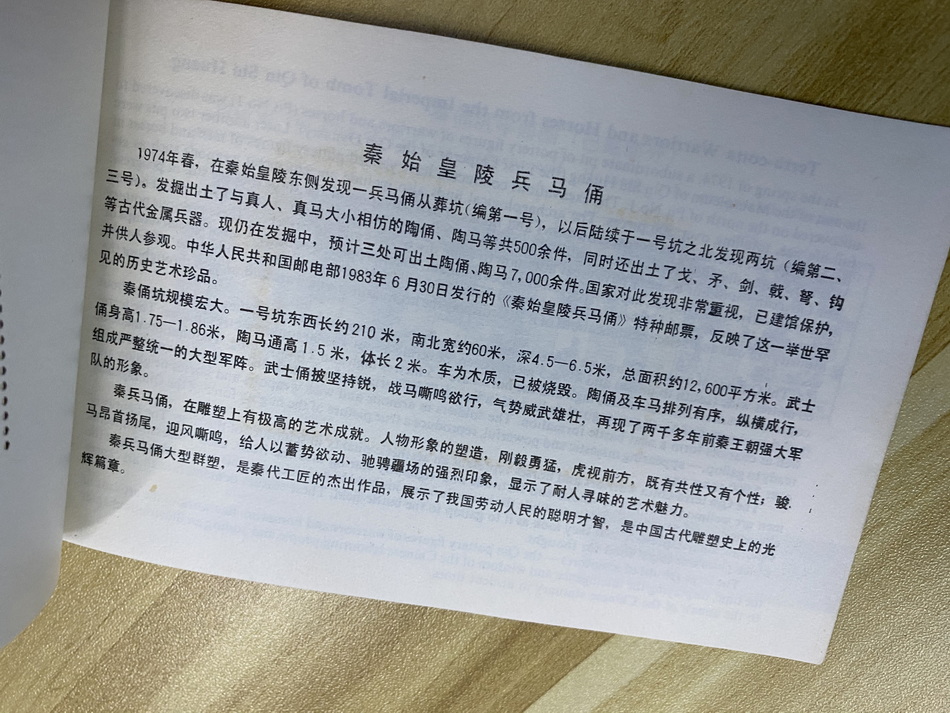 秦始皇陵兵马俑
1974年春，在秦始皇陵东侧发现一兵马俑从葬坑(编第一号)，以后陆续于一号坑之北发现两坑（编第二、
三号)。发掘出土了与真人、真马大小相仿的陶俑、陶马等共500余件，同时还出土了戈、矛、剑、戟、弩、钩
等古代金属兵器。现仍在发掘中，预计三处可出土陶俑、陶马7,000余件。国家对此发现非常重视，已建馆保护，
并供人参观。中华人民共和国邮电部1983年6月30日发行的《秦始皇陵兵马俑》特种邮票，反映了这一举世罕
见的历史艺术珍品。
秦俑坑规模宏大。一号坑东西长约210米，南北宽约60米，深4.5—6.5米，总面积约12,600平方米。武士
俑身高1.75—1.86米，陶马通高1.5米，体长2米。车为木质，已被烧毁。陶俑及车马排列有序，纵横成行，
组成严整统一的大型军阵。武士俑披坚持锐，战马嘶鸣欲行，气势威武雄壮，再现了两千多年前秦王朝强大军
队的形象。
秦兵马俑，在雕塑上有极高的艺术成就。人物形象的塑造，刚毅勇猛，虎视前方，既有共性又有个性；骏
马昂首扬尾，迎风嘶鸣，给人以蓄势欲动、驰骋疆场的强烈印象，显示了耐人寻味的艺术魅力。
秦兵马俑大型群塑，是秦代工匠的杰出作品，展示了我国劳动人民的聪明才智，是中国古代雕塑史上的光
辉篇章。